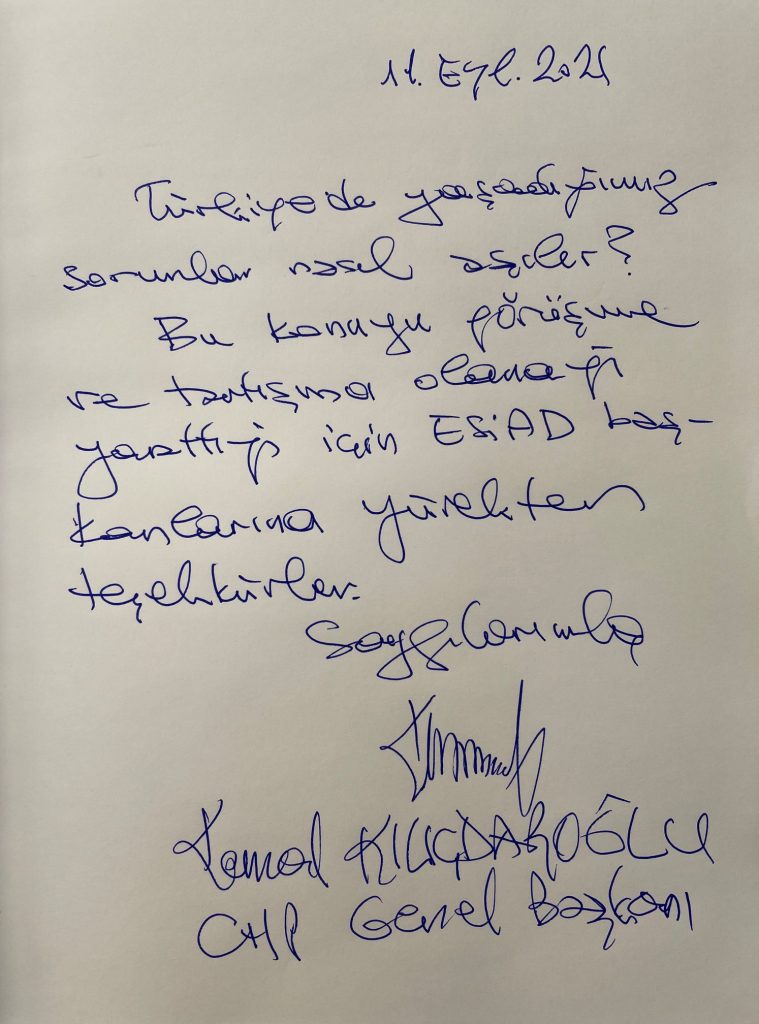 11. Eyl. 2021
Türkiye'de yaşadığımız
sorunlar nasıl aşılır?
Bu konuyu görüşme
ve tartışma olanağı
yarattığı için ESİAD baş-
kanlarına yürekten
teşekkürler.
Saygılarımla
Kemal KILIÇDAROĞLU
CHP Genel Başkanı